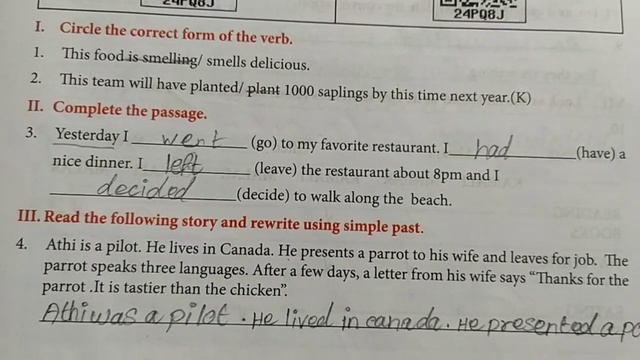 24PQ8J
24PQ8J
I. Circle the correct form of the verb.
1. This food is smelling/ smells delicious.
2. This team will have planted/ plant 1000 saplings by this time next year.(K)
II. Complete the passage.
3. Yesterday I went (go) to my favorite restaurant. I had (have) a
nice dinner. I left (leave) the restaurant about 8pm and I
decided (decide) to walk along the beach.
III. Read the following story and rewrite using simple past.
4. Athi is a pilot. He lives in Canada. He presents a parrot to his wife and leaves for job. The
parrot speaks three languages. After a few days, a letter from his wife says “Thanks for the
parrot .It is tastier than the chicken”.
Athi was a pilot. He lived in canada. He presented a